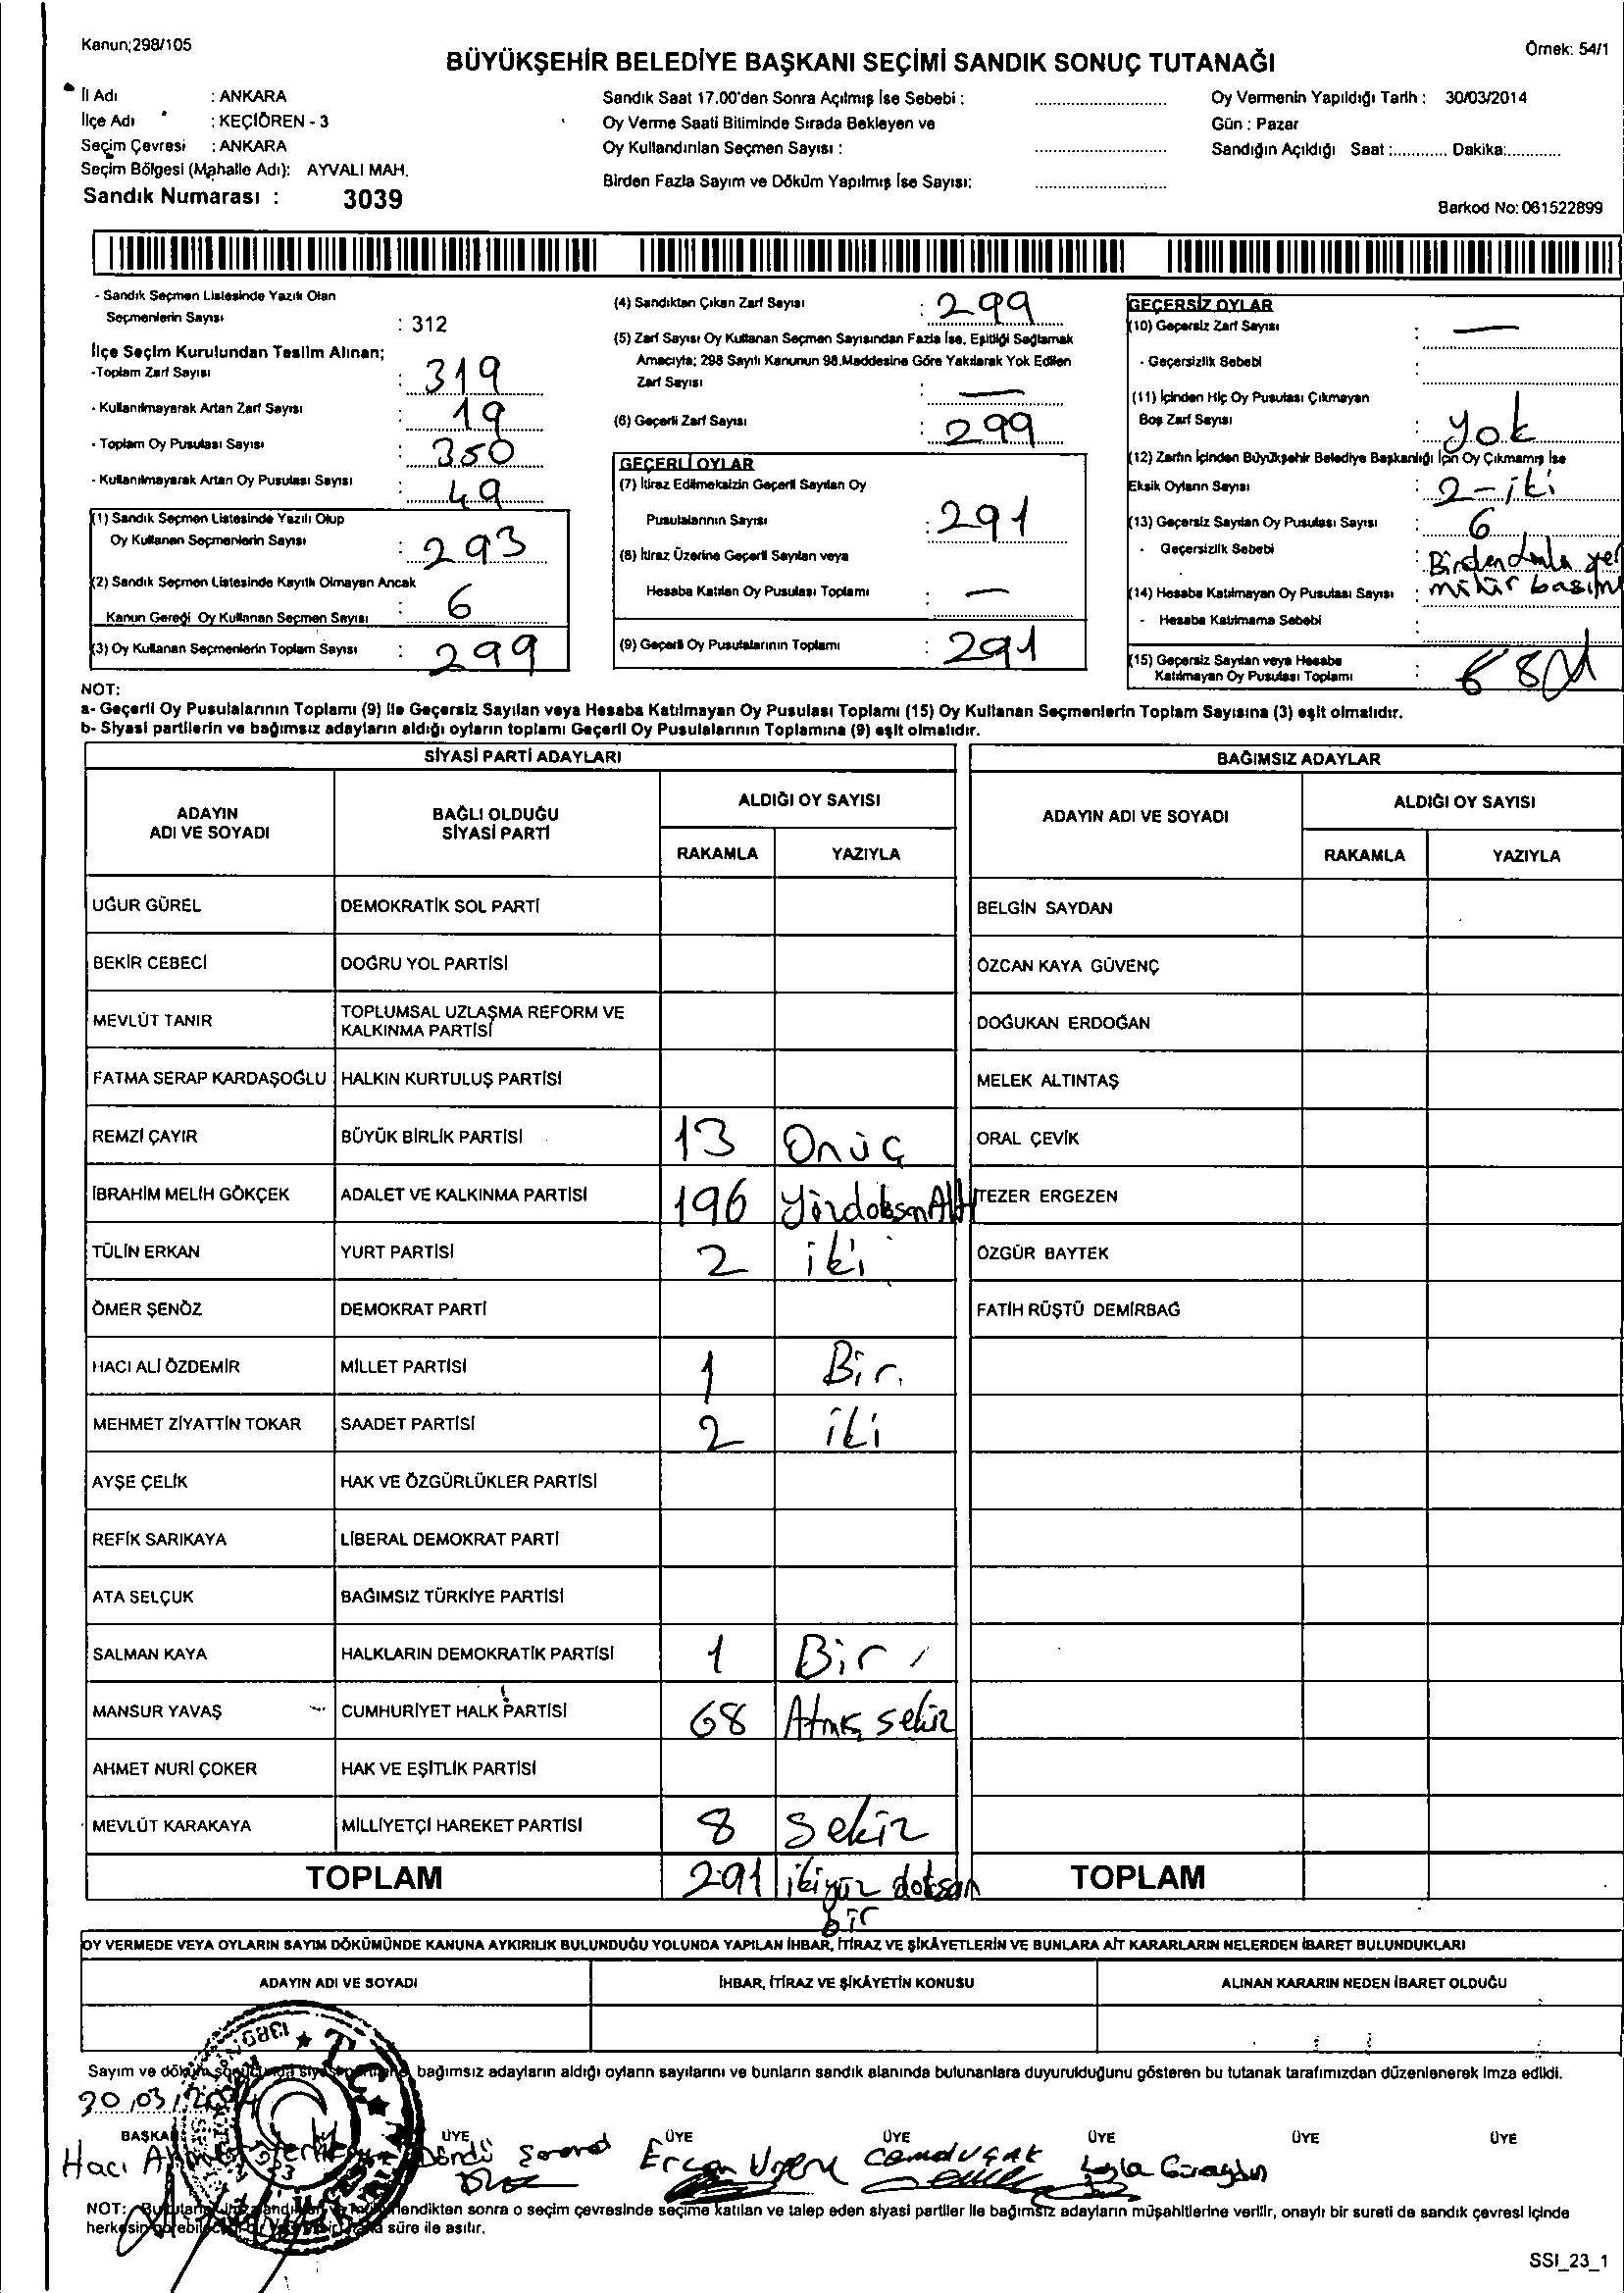 Kanun;298/105
Örnek: 54/1
BÜYÜKŞEHİR BELEDİYE BAŞKANI SEÇİMİ SANDIK SONUÇ TUTANAĞI
İl Adı : ANKARA
İlçe Adı : KEÇİÖREN - 3
Seçim Çevresi : ANKARA
Seçim Bölgesi (Mahalle Adı): AYVALI MAH.
Sandık Numarası : 3039
Sandık Saat 17.00'den Sonra Açılmış İse Sebebi :
Oy Verme Saati Bitiminde Sırada Bekleyen ve
Oy Kullandırılan Seçmen Sayısı :
Birden Fazla Sayım ve Döküm Yapılmış İse Sayısı:
Oy Vermenin Yapıldığı Tarih : 30/03/2014
Gün : Pazar
Sandığın Açıldığı Saat :............ Dakika:............
Barkod No: 061522899
- Sandık Seçmen Listesinde Yazılı Olan
Seçmenlerin Sayısı : 312
İlçe Seçim Kurulundan Teslim Alınan;
-Toplam Zarf Sayısı : 319
- Kullanılmayarak Artan Zarf Sayısı : 19
- Toplam Oy Pusulası Sayısı : 350
- Kullanılmayarak Artan Oy Pusulası Sayısı : 49
(1) Sandık Seçmen Listesinde Yazılı Olup
Oy Kullanan Seçmenlerin Sayısı : 293
(2) Sandık Seçmen Listesinde Kayıtlı Olmayan Ancak
Kanun Gereği Oy Kullanan Seçmen Sayısı : 6
(3) Oy Kullanan Seçmenlerin Toplam Sayısı : 299
(4) Sandıktan Çıkan Zarf Sayısı : 299
(5) Zarf Sayısı Oy Kullanan Seçmen Sayısından Fazla İse, Eşitliği Sağlamak
Amacıyla; 298 Sayılı Kanunun 98.Maddesine Göre Yakılarak Yok Edilen
Zarf Sayısı : —
(6) Geçerli Zarf Sayısı : 299
GEÇERLİ OYLAR
(7) İtiraz Edilmeksizin Geçerli Sayılan Oy
Pusulalarının Sayısı : 291
(8) İtiraz Üzerine Geçerli Sayılan veya
Hesaba Katılan Oy Pusulası Toplamı : —
(9) Geçerli Oy Pusulalarının Toplamı : 291
GEÇERSİZ OYLAR
(10) Geçersiz Zarf Sayısı : —
- Geçersizlik Sebebi :
(11) İçinden Hiç Oy Pusulası Çıkmayan
Boş Zarf Sayısı : yok
(12) Zarfın İçinden Büyükşehir Belediye Başkanlığı İçin Oy Çıkmamış İse
Eksik Oyların Sayısı : 2-iki
(13) Geçersiz Sayılan Oy Pusulası Sayısı : 6
- Geçersizlik Sebebi : Birden
(14) Hesaba Katılmayan Oy Pusulası Sayısı : mühür
- Hesaba Katılmama Sebebi :
(15) Geçersiz Sayılan veya Hesaba
Katılmayan Oy Pusulası Toplamı : 8
NOT:
a- Geçerli Oy Pusulalarının Toplamı (9) ile Geçersiz Sayılan veya Hesaba Katılmayan Oy Pusulası Toplamı (15) Oy Kullanan Seçmenlerin Toplam Sayısına (3) eşit olmalıdır.
b- Siyasi partilerin ve bağımsız adayların aldığı oyların toplamı Geçerli Oy Pusulalarının Toplamına (9) eşit olmalıdır.
SİYASİ PARTİ ADAYLARI
BAĞIMSIZ ADAYLAR
ADAYIN ADI VE SOYADI
BAĞLI OLDUĞU SİYASİ PARTİ
ALDIĞI OY SAYISI
RAKAMLA YAZIYLA
ADAYIN ADI VE SOYADI
ALDIĞI OY SAYISI
RAKAMLA YAZIYLA
UĞUR GÜREL DEMOKRATİK SOL PARTİ BELGİN SAYDAN
BEKİR CEBECİ DOĞRU YOL PARTİSİ ÖZCAN KAYA GÜVENÇ
MEVLÜT TANIR TOPLUMSAL UZLAŞMA REFORM VE KALKINMA PARTİSİ DOĞUKAN ERDOĞAN
FATMA SERAP KARDAŞOĞLU HALKIN KURTULUŞ PARTİSİ MELEK ALTINTAŞ
REMZİ ÇAYIR BÜYÜK BİRLİK PARTİSİ 13 Onüç ORAL ÇEVİK
İBRAHİM MELİH GÖKÇEK ADALET VE KALKINMA PARTİSİ 196 yüzdoksanAltı TEZER ERGEZEN
TÜLİN ERKAN YURT PARTİSİ 2 iki ÖZGÜR BAYTEK
ÖMER ŞENÖZ DEMOKRAT PARTİ FATİH RÜŞTÜ DEMİRBAĞ
HACI ALİ ÖZDEMİR MİLLET PARTİSİ 1 Bir.
MEHMET ZİYATTİN TOKAR SAADET PARTİSİ 2 iki
AYŞE ÇELİK HAK VE ÖZGÜRLÜKLER PARTİSİ
REFİK SARIKAYA LİBERAL DEMOKRAT PARTİ
ATA SELÇUK BAĞIMSIZ TÜRKİYE PARTİSİ
SALMAN KAYA HALKLARIN DEMOKRATİK PARTİSİ 1 Bir
MANSUR YAVAŞ CUMHURİYET HALK PARTİSİ 68 Atmış sekiz
AHMET NURİ ÇOKER HAK VE EŞİTLİK PARTİSİ
MEVLÜT KARAKAYA MİLLİYETÇİ HAREKET PARTİSİ 8 Sekiz
TOPLAM 291 ikiyüz doksan bir TOPLAM
OY VERMEDE VEYA OYLARIN SAYIM DÖKÜMÜNDE KANUNA AYKIRILIK BULUNDUĞU YOLUNDA YAPILAN İHBAR, İTİRAZ VE ŞİKÂYETLERİN VE BUNLARA AİT KARARLARIN NELERDEN İBARET BULUNDUKLARI
ADAYIN ADI VE SOYADI İHBAR, İTİRAZ VE ŞİKÂYETİN KONUSU ALINAN KARARIN NEDEN İBARET OLDUĞU
Sayım ve bağımsız adayların aldığı oyların sayılarını ve bunların sandık alanında bulunanlara duyurulduğunu gösteren bu tutanak tarafımızdan düzenlenerek imza edildi.
BAŞKAN ÜYE ÜYE ÜYE ÜYE ÜYE ÜYE
Hacı Ercan
NOT: sonra o seçim çevresinde seçime katılan ve talep eden siyasi partiler ile bağımsız adayların müşahitlerine verilir, onaylı bir sureti de sandık çevresi içinde
süre ile asılır.
SSI_23_1